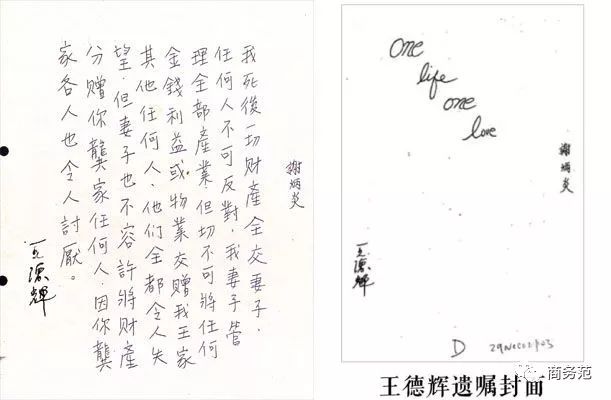 謝炳炎
我死後一切财產全交妻子，
任何人不可反對，我妻子管
理全部產業，但切不可將任何
金錢利益或物業交贈我王家
其他任何人，他们全都令人失
望，但妻子也不容許將财產
分贈你龔家任何人，因你龔
家各人也令人討厭。
王德輝
one
life
one
love
謝炳炎
王德輝
D
王德辉遗嘱封面
商务范